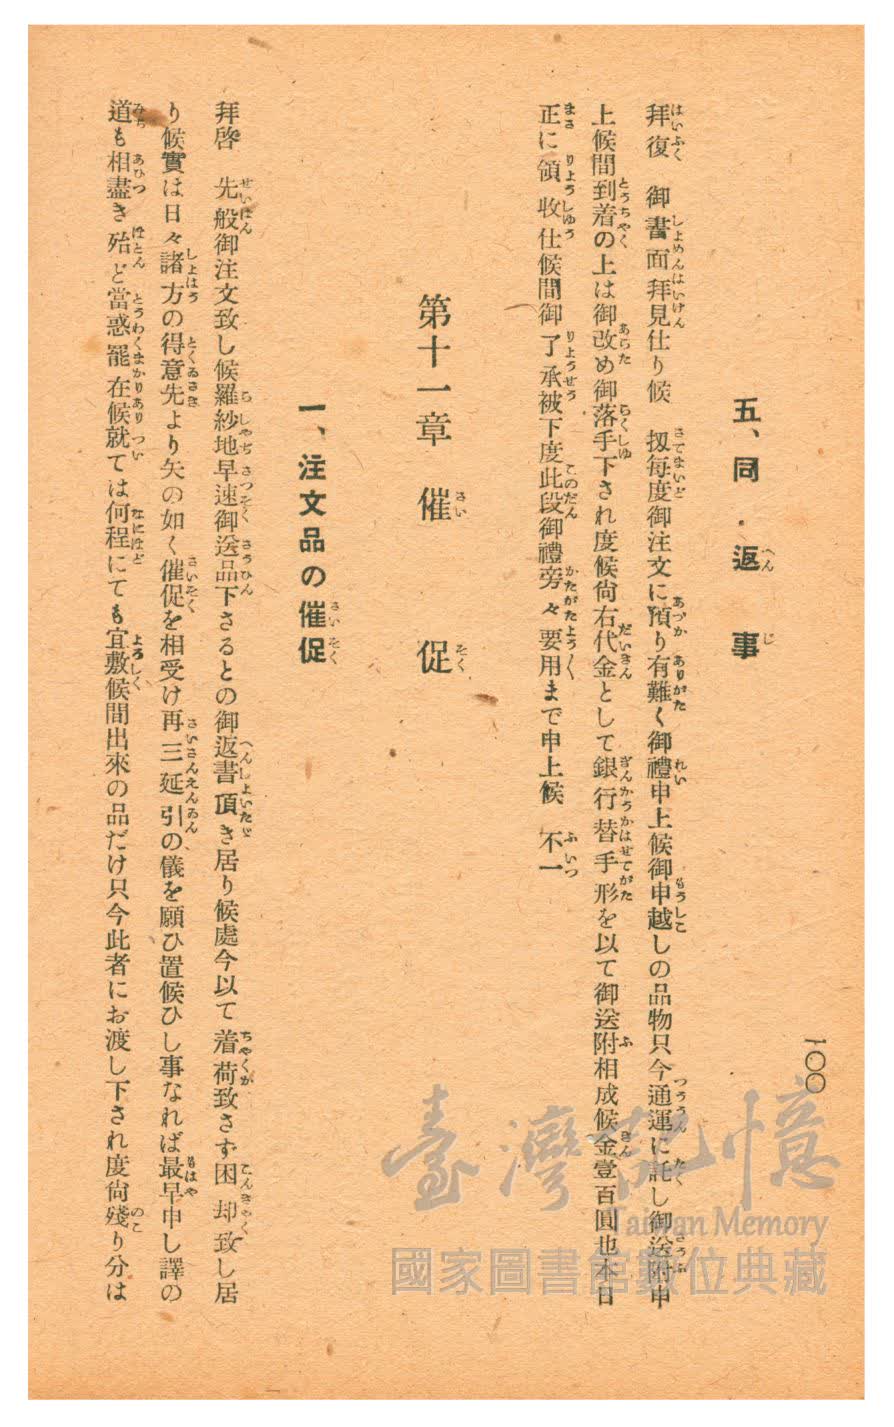 一〇〇
五、同・返事
拜復　御書面拜見仕り候　扨每度御注文に預り有難く御禮申上候御申越しの品物只今通運に託し御送附申
上候間到着の上は御改め御落手下され度候尙右代金として銀行替手形を以て御送附相成候金壹百圓也本日
正に領收仕候間御了承被下度此段御禮旁々要用まで申上候　不一
第十一章　催促
一、注文品の催促
拜啓　先般御注文致し候羅紗地早速御送品下さるとの御返書頂き居り候處今以て着荷致さず困却致し居
り候實は日々諸方の得意先より矢の如く催促を相受け再三延引の儀を願ひ置候ひし事なれば最早申し譯の
道も相盡き殆ど當惑罷在候就ては何程にても宜敷候間出來の品だけ只今此者にお渡し下され度尙殘り分は
臺灣記憶
Taiwan Memory
國家圖書館數位典藏